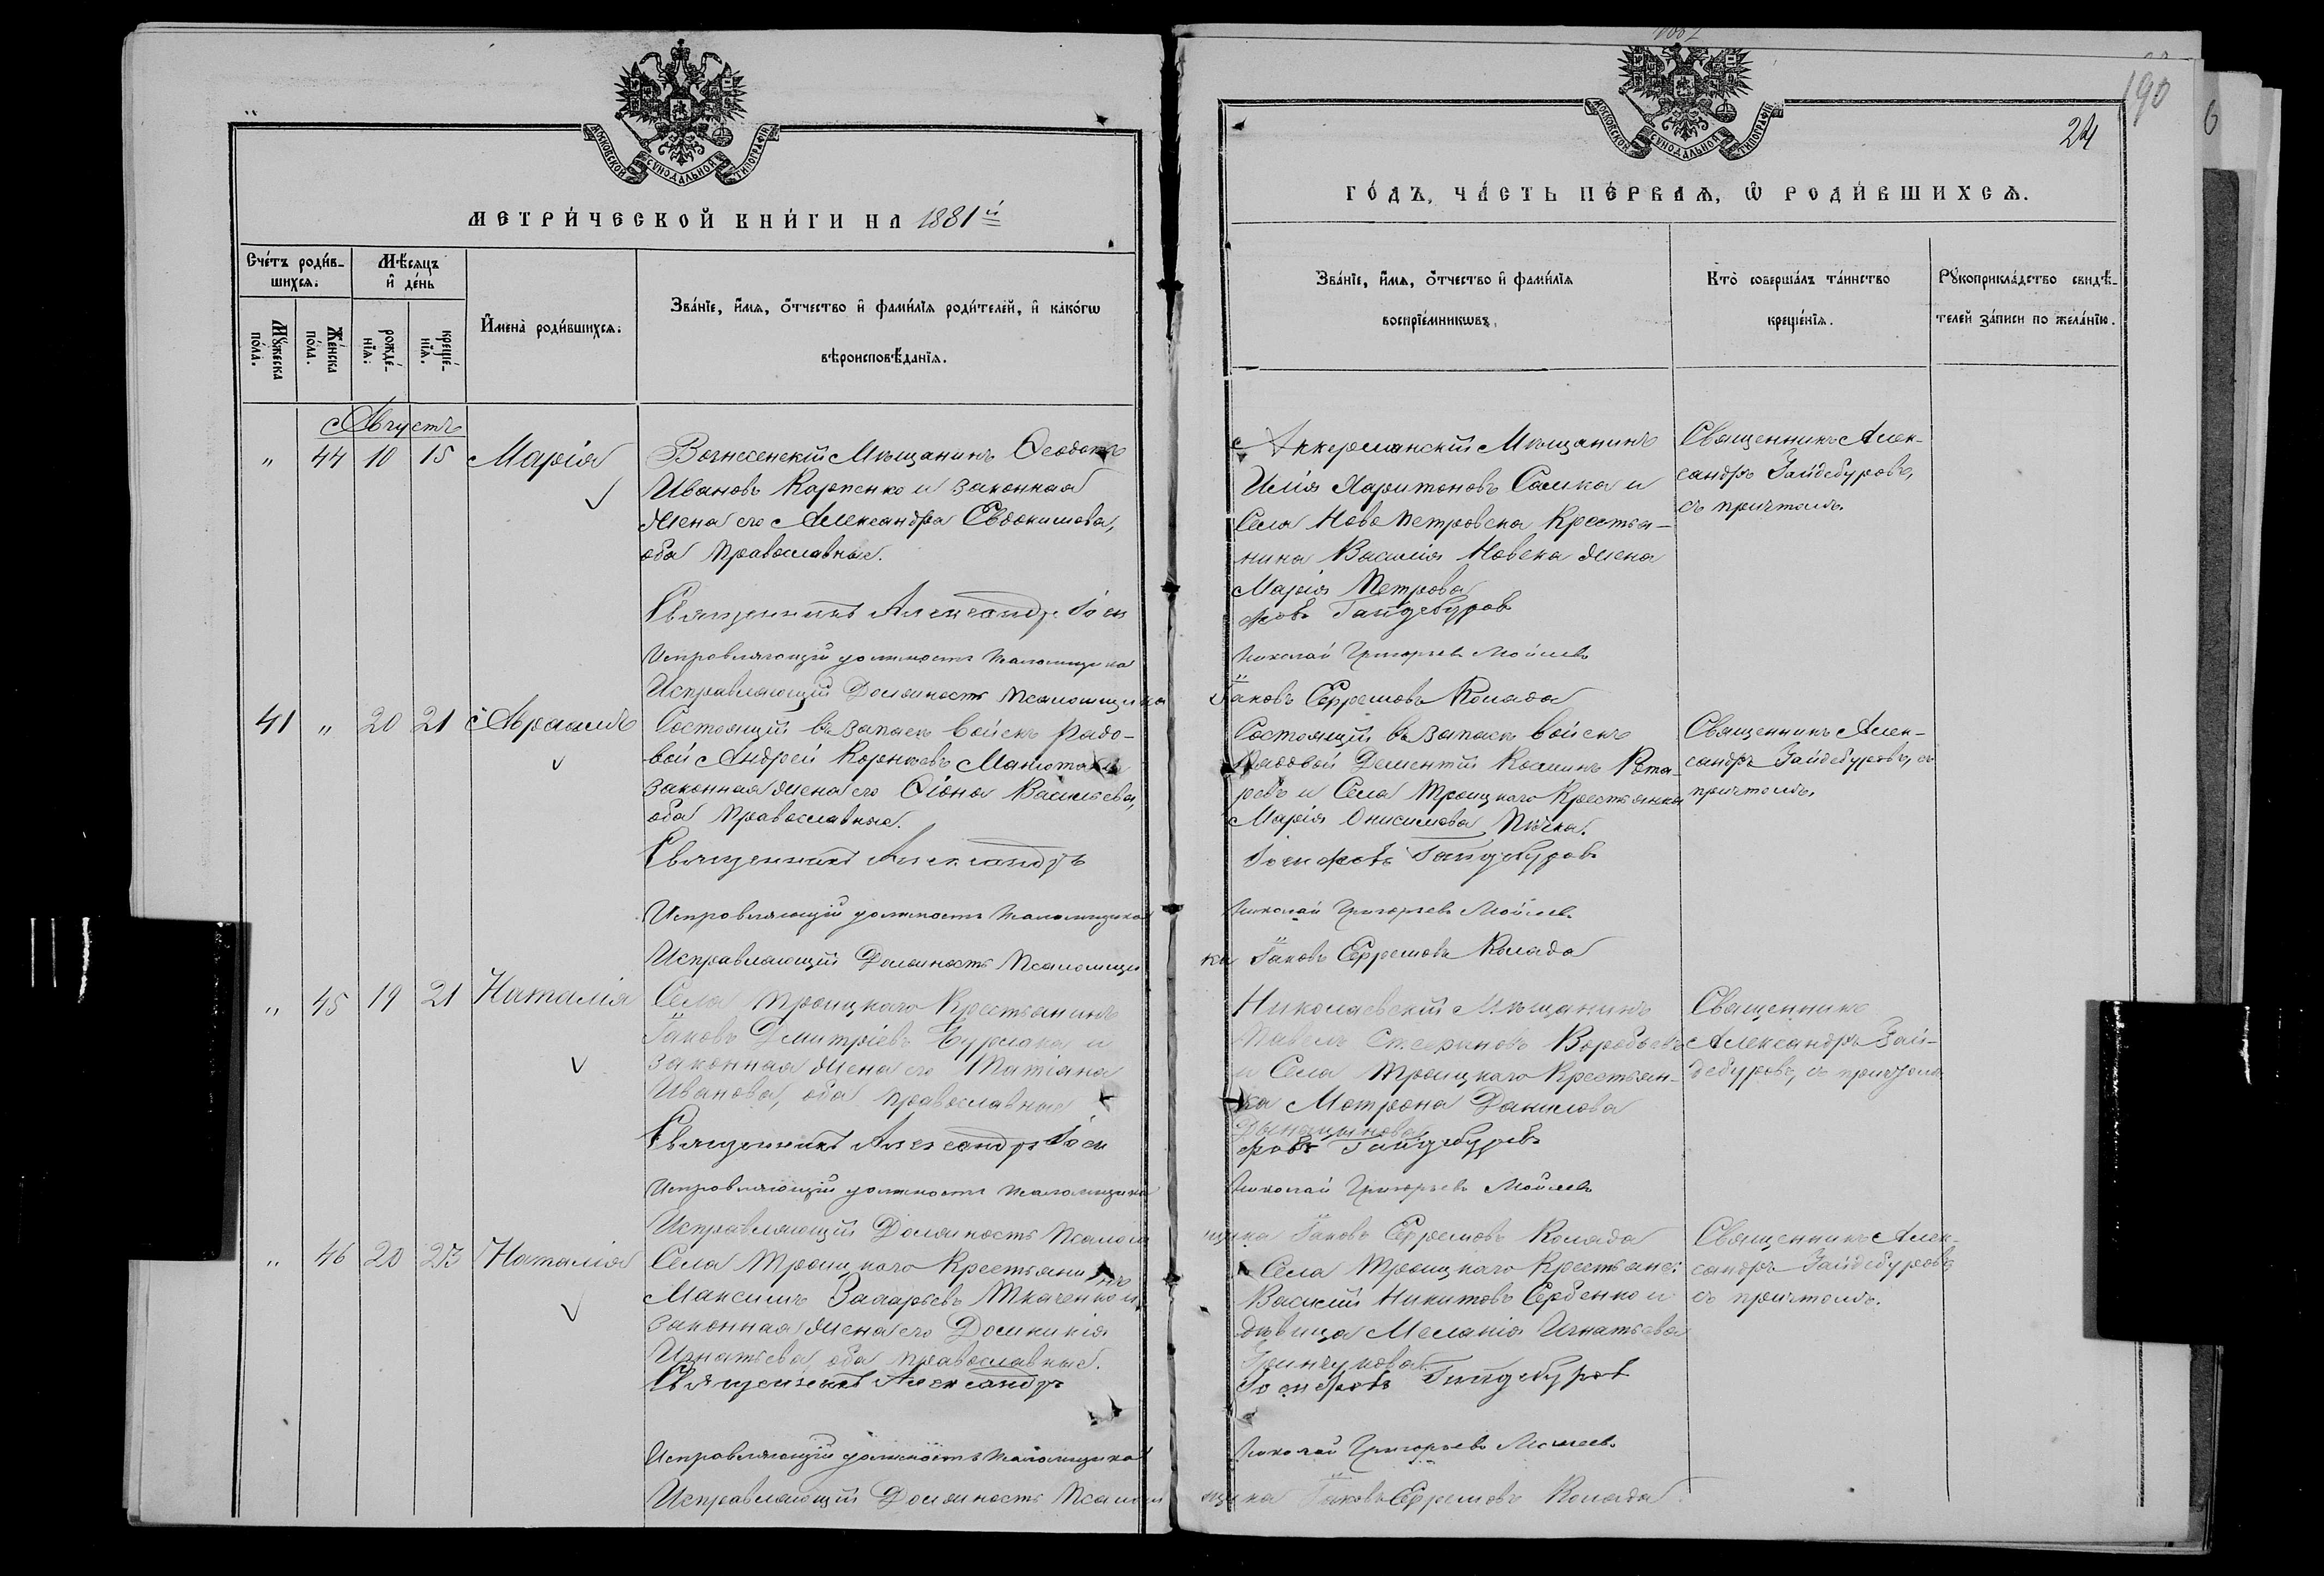 МОСКОВСКОЙ СѴНОДАЛЬНОЙ ТИПОГРАФІИ
МЕТРИ́ЧЕСКОЙ КНИ́ГИ НА 1881й
Сче́тъ роди́в-
шихся.
Мѣ́сяцъ
и҆ де́нь
Мꙋ́жеска
пола.
Же́нска
по́ла.
рожде́-
нїя.
креще́-
нїя.
И҆мена̀ роди́вшихся.
Зва́нїе, и҆́мя, ѻ҆́тчество и҆ фами́лїя роди́телей, и҆ како́гѡ
вѣроисповѣ́данїя.
Августъ
" 44 10 15 Марія
Вознесенскій Мѣщанинъ Ѳеодотъ
Ивановъ Карпенко и законная
жена его Александра Евдокимова,
оба православные.
Священникъ Александръ Іоси
Исправляющій должность псаломщика
Исправляющій Должность Псаломщика
41 " 20 21 Авраамъ
Состоящій въ запасѣ войскъ рядо-
вой Андрей Корнѣевъ
законная жена его Ѳіона Васильева,
оба православные.
Священникъ Александръ
Исправляющій должность псаломщика
Исправляющій Должность Псаломщи
" 45 19 21 Наталія
Села Троицкаго Крестьянинъ
Іаковъ Дмитріевъ Бурлака и
законная жена его Татіана
Иванова, оба православные
Священникъ Александръ Іоси
Исправляющій должность псаломщика
Исправляющій Должность Псалом
" 46 20 23 Наталія
Села Троицкаго Крестьянинъ
Максимъ Захарьевъ Ткаченко и
законная жена его Домникія
Игнатьева, оба православные.
Священникъ Александръ
Исправляющій должность псаломщика
Исправляющій Должность Псалом
190
6
24
МОСКОВСКОЙ СѴНОДАЛЬНОЙ ТИПОГРАФІИ
ГО́ДЪ, ЧА́СТЬ ПЕ́РВАЯ, Ѽ РОДИ́ВШИХСЯ.
Зва́нїе, и҆́мя, ѻ҆́тчество и҆ фами́лїя
воспрїе́мникѡвъ.
Кто̀ соверша́лъ та́инство
креще́нїя.
Рꙋкоприкла́дство свидѣ́-
телей за́писи по жела́нїю.
Аккерманскій Мѣщанинъ
Илія Харитоновъ Самка и
Села Ново Петровска Крестья-
нина Василія Новека жена
Марія Петрова
фовъ Гайдебуровъ
Николай Григорьевъ Мойсеевъ
Іаковъ Ефремовъ Колада
Священникъ Алек-
сандръ Гайдебуровъ,
съ причтомъ.
Состоящій въ запасѣ войскъ
Рядовой Дементій Косминъ Рота-
ревъ и Села Троицкаго Крестьянка
Марія Онисимова
Іосифовъ Гайдебуровъ
Николай Григорьевъ Мойсеевъ
ка Іаковъ Ефремовъ Колада
Священникъ Алек-
сандръ Гайдебуровъ, съ
причтомъ.
Николаевскій Мѣщанинъ
Павелъ Воробьевъ
и Села Троицкаго Крестьян-
ка Мотрона Данилова
фовъ Гайдебуровъ
Николай Григорьевъ Мойсеевъ
щика Іаковъ Ефремовъ Колада
Священникъ
Александръ Гай-
дебуровъ, съ причтомъ
Села Троицкаго Крестьяне:
Василій Никитовъ Сербенко и
дѣвица Меланія Игнатьева
Гринчукова
Іосифовъ Гайдебуровъ
Николай Григорьевъ Мойсеевъ
щика Іаковъ Ефремовъ Колада
Священникъ Алек-
сандръ Гайдебуровъ
съ причтомъ.